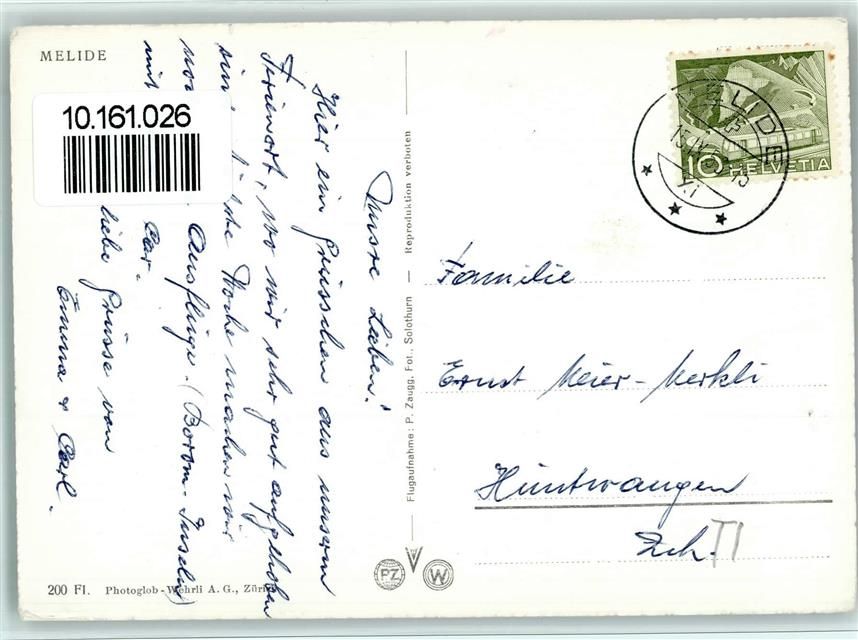 MELIDE
10.161.026
Unsre Lieben!
Hier ein Grüsschen aus unserm
Ferienort, wo wir sehr gut aufgehoben
sind. Woche machen wir
Ausflüge. (Borom-Inseln)
mit Car.
Liebe Grüsse von
Emma & Carl.
Flugaufnahme: P. Zaugg, Fot., Solothurn — Reproduktion verboten
10 HELVETIA
Familie
Ernst Meier-Merkli
Hüntwangen
Zch.
TI
PZ
W
200 Fl. Photoglob-Wehrli A. G., Zürich